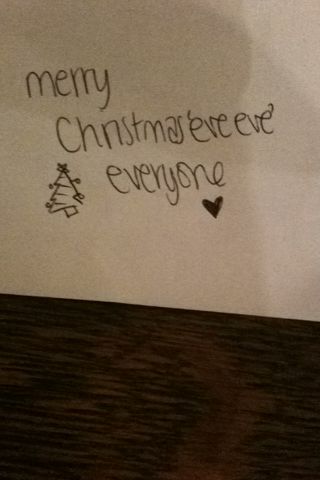 merry
Christmas 'eve eve'
everyone